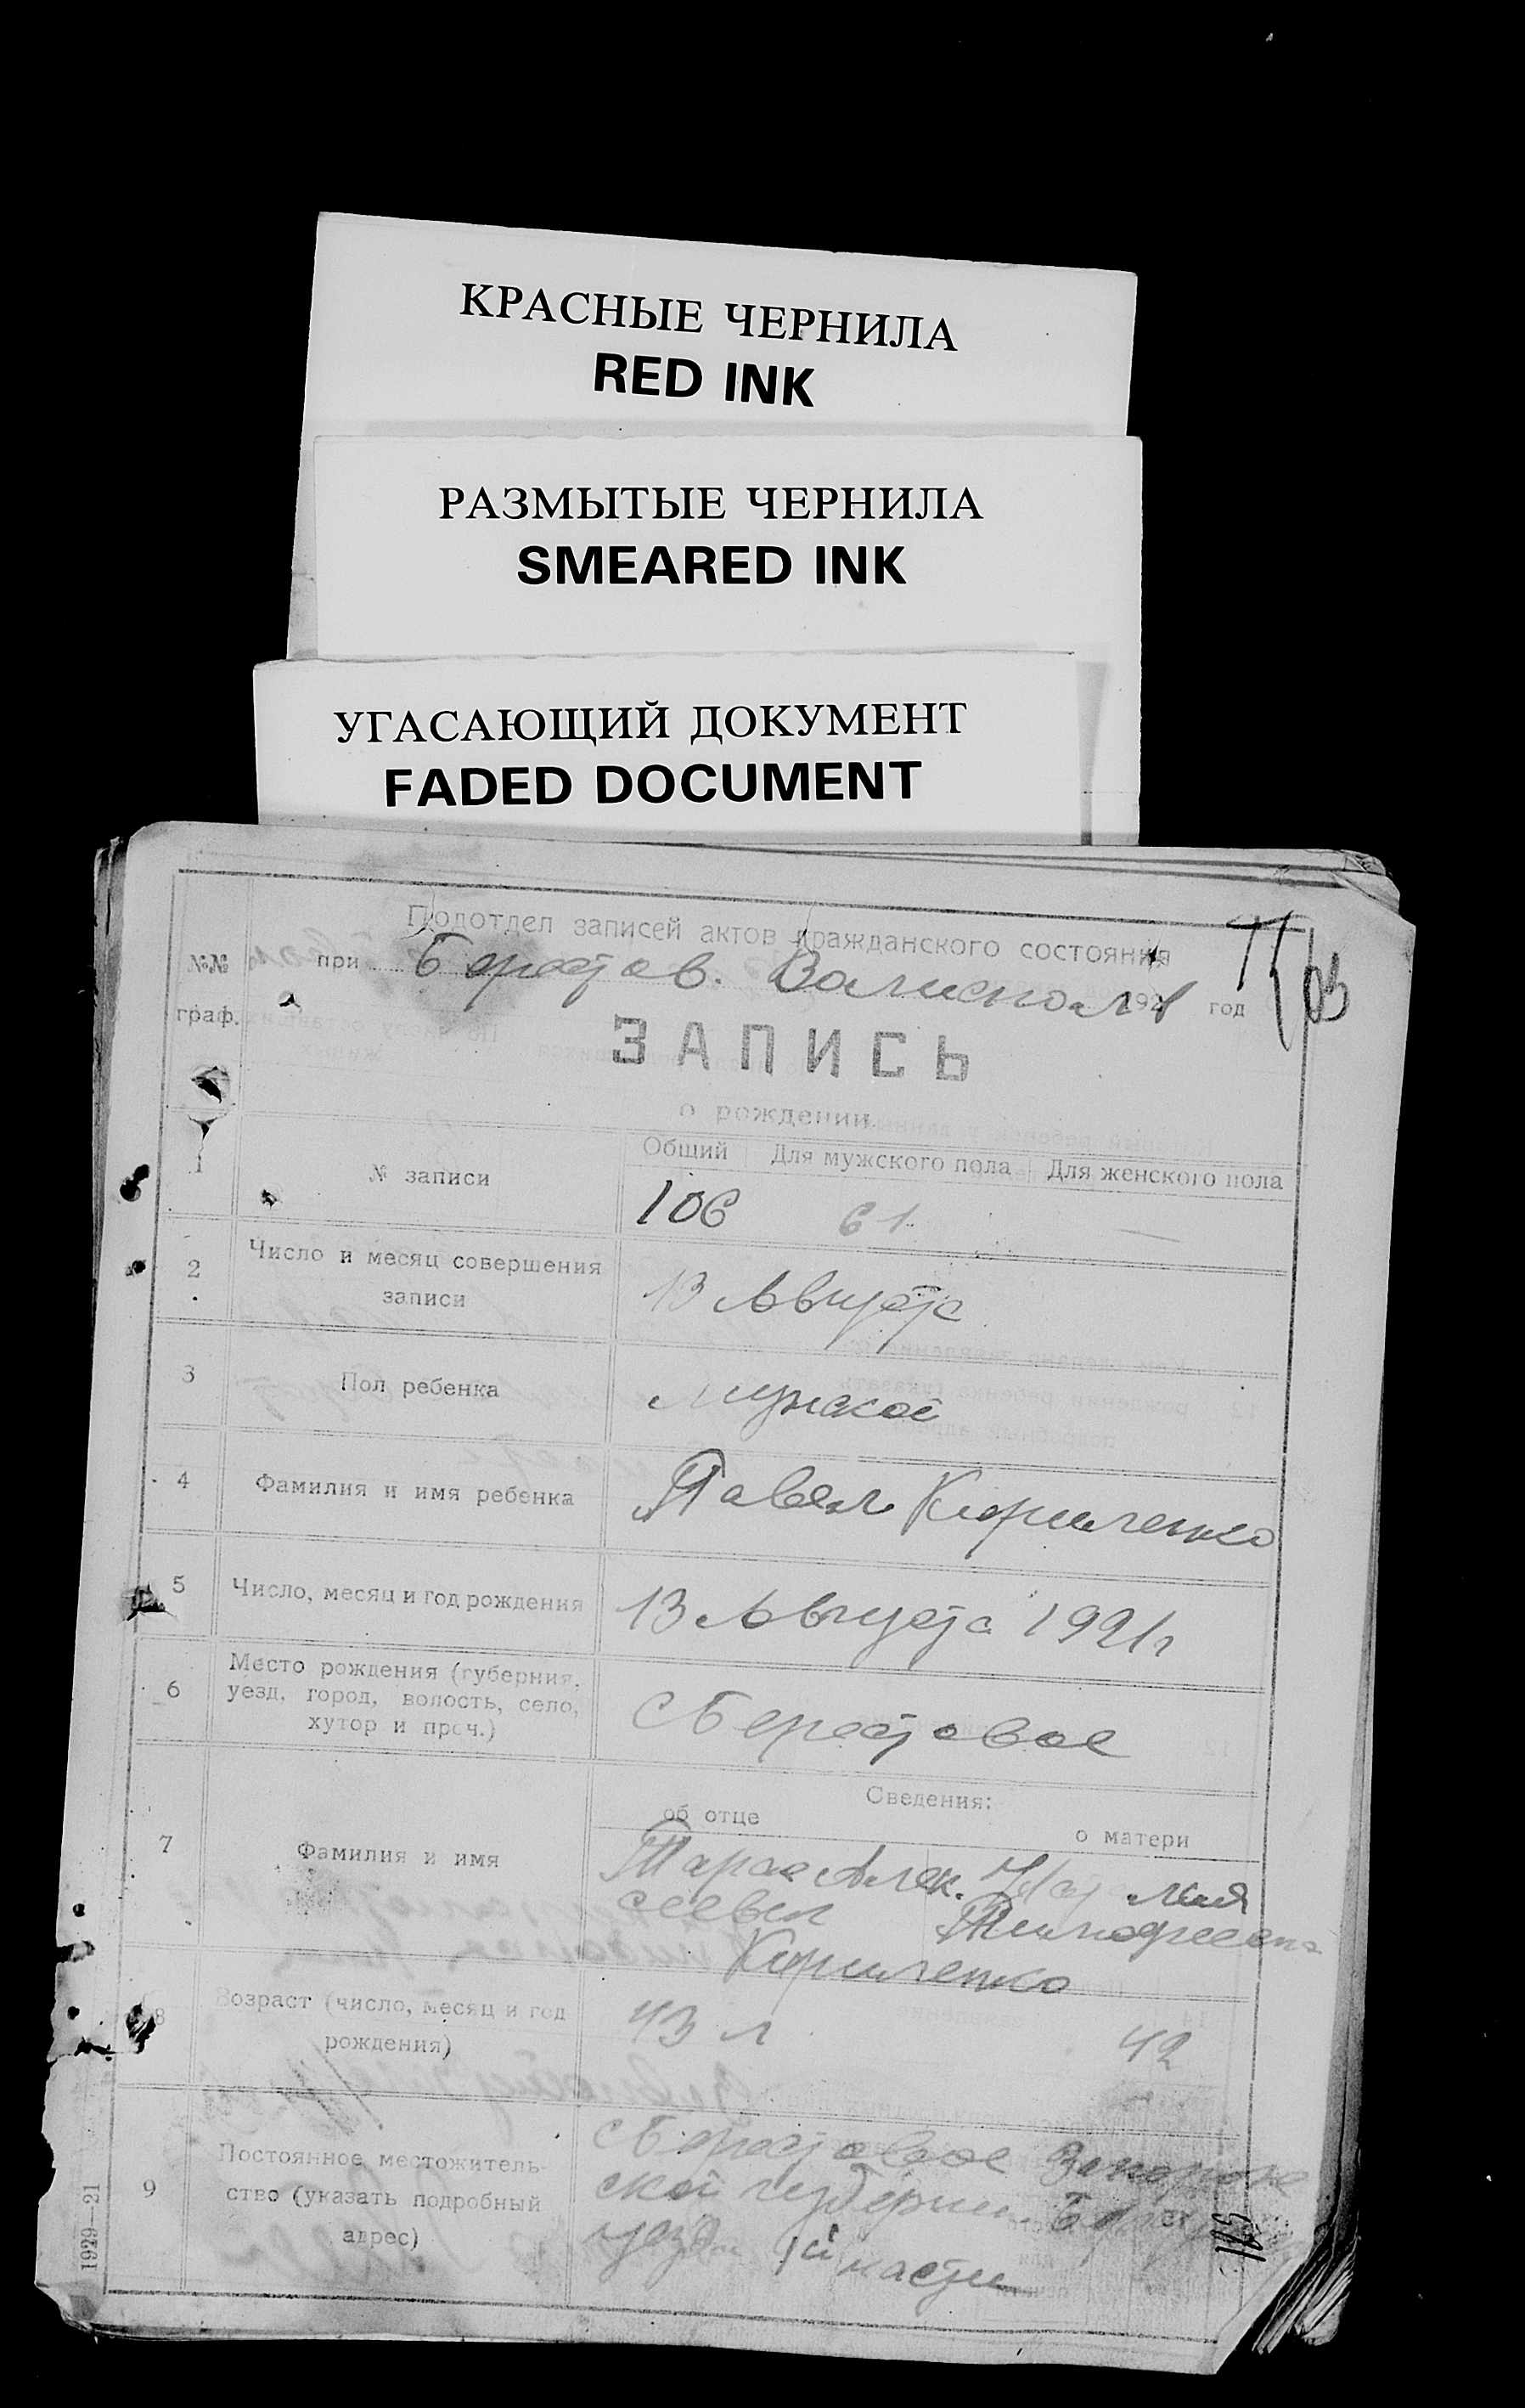 КРАСНЫЕ ЧЕРНИЛА
RED INK
РАЗМЫТЫЕ ЧЕРНИЛА
SMEARED INK
УГАСАЮЩИЙ ДОКУМЕНТ
FADED DOCUMENT
Подотдел записей актов гражданского состояния
№№ граф.
при Берестов. Волисполк 192 1 год
103
ЗАПИСЬ
о рождении.
Общий Для мужского пола Для женского пола
1 № записи 106 61 —
2 Число и месяц совершения
записи
13 Августа
3 Пол ребенка Мужской
4 Фамилия и имя ребенка Павел Кириленко
5 Число, месяц и год рождения 13 Августа 1921 г
6 Место рождения (губерния,
уезд, город, волость, село,
хутор и проч.)
с Берестовое
Сведения:
об отце о матери
7 Фамилия и имя
Тарас Алек.
сеевич Тимофеевна
Кириленко
8 Возраст (число, месяц и год
рождения)
43 л 42
9 Постоянное местожитель-
ство (указать подробный
адрес)
с Берестовое Запорож
ской губернии
уезда 1й части
1929—21